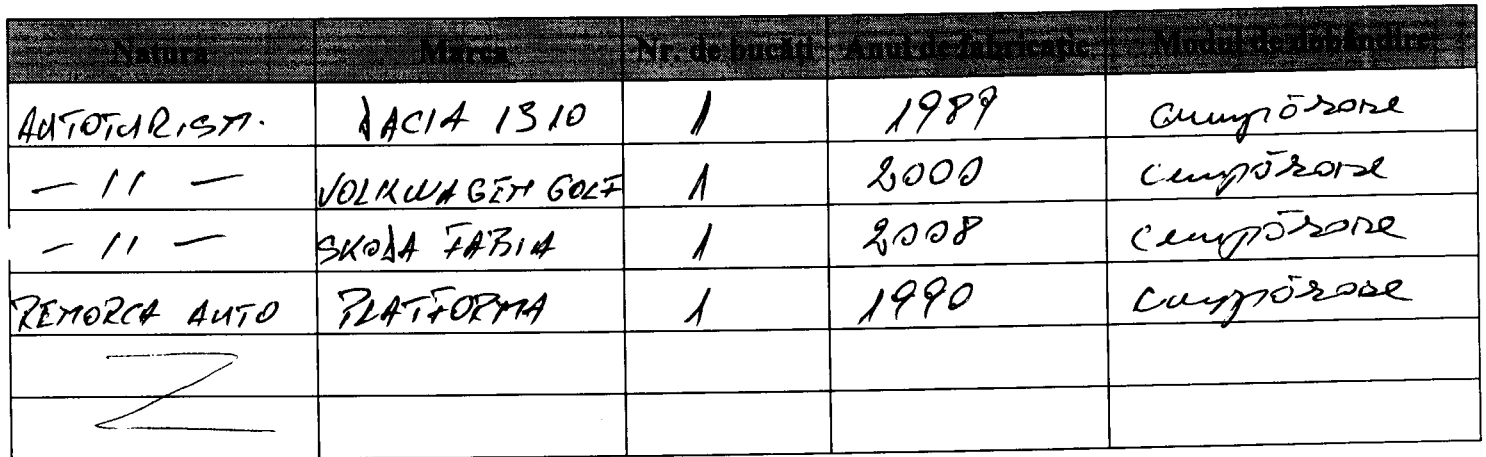 Natura Marca Nr. de bucăți Anul de fabricație Modul de dobândire
AUTOTURISM. DACIA 1310 1 1989 Cumpărare
— 11 — VOLKWAGEN GOLF 1 2000 Cumpărare
— 11 — SKODA FABIA 1 2008 Cumpărare
REMORCA AUTO PLATFORMA 1 1990 Cumpărare